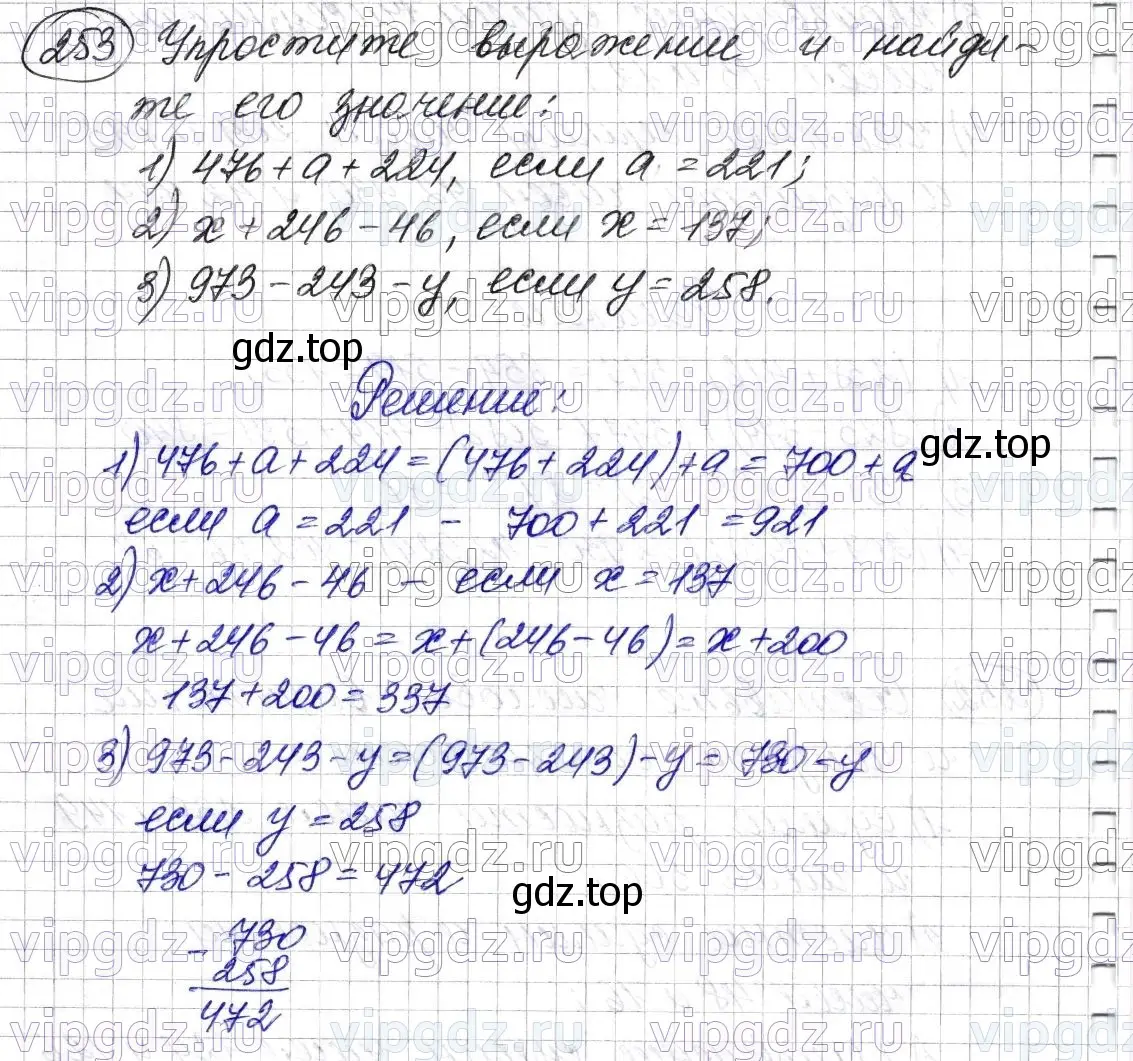 253 Упростите выражение и найди-
те его значение:
1) 476 + a + 224, если a = 221;
2) x + 246 - 46, если x = 137;
3) 973 - 243 - y, если y = 258.
gdz.top
Решение:
1) 476 + a + 224 = (476 + 224) + a = 700 + a
gdz.top
если a = 221 - 700 + 221 = 921
2) x + 246 - 46 - если x = 137
x + 246 - 46 = x + (246 - 46) = x + 200
137 + 200 = 337
3) 973 - 243 - y = (973 - 243) - y = 730 - y
если y = 258
730 - 258 = 472
gdz.top
- 730
258
472
vipgdz.ru